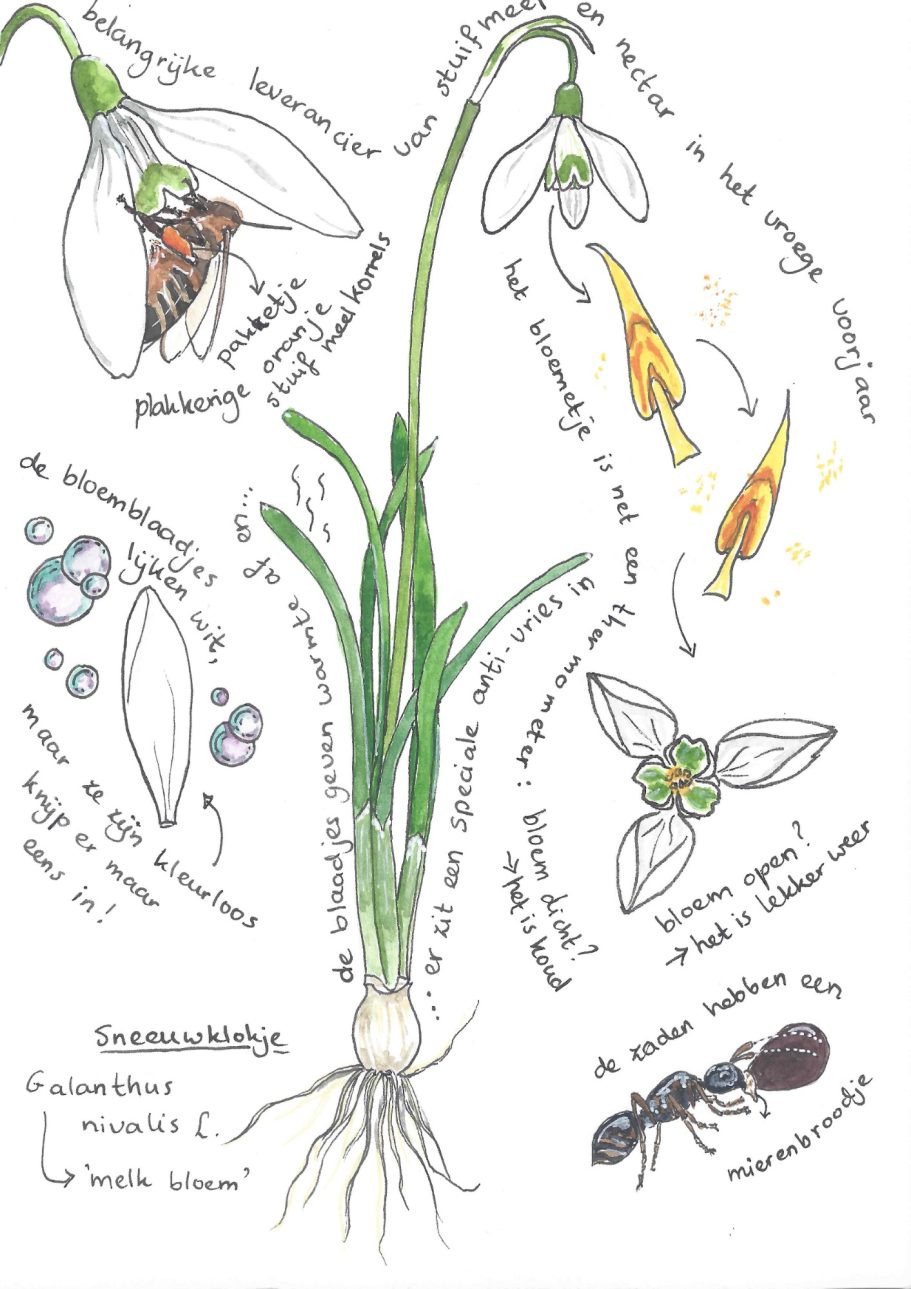 belangrijke leverancier van stuifmeel en nectar in het vroege voorjaar
plakkerige
pakketje
oranje
stuifmeelkorrels
het bloemetje is net een thermometer:
bloem dicht?
→ het is koud
bloem open?
→ het is lekker weer
de bloemblaadjes
lijken wit,
maar ze zijn kleurloos
knijp er maar
eens in!
de blaadjes geven warmte af en...
...er zit een speciale anti-vries in
Sneeuwklokje
Galanthus
nivalis L.
'melk bloem'
de zaden hebben een
mierenbroodje